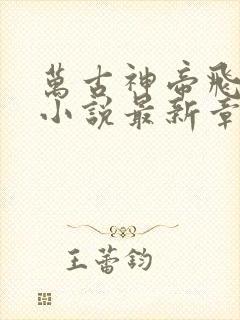 萬古神帝飛
小說最新章
王蕾鈞